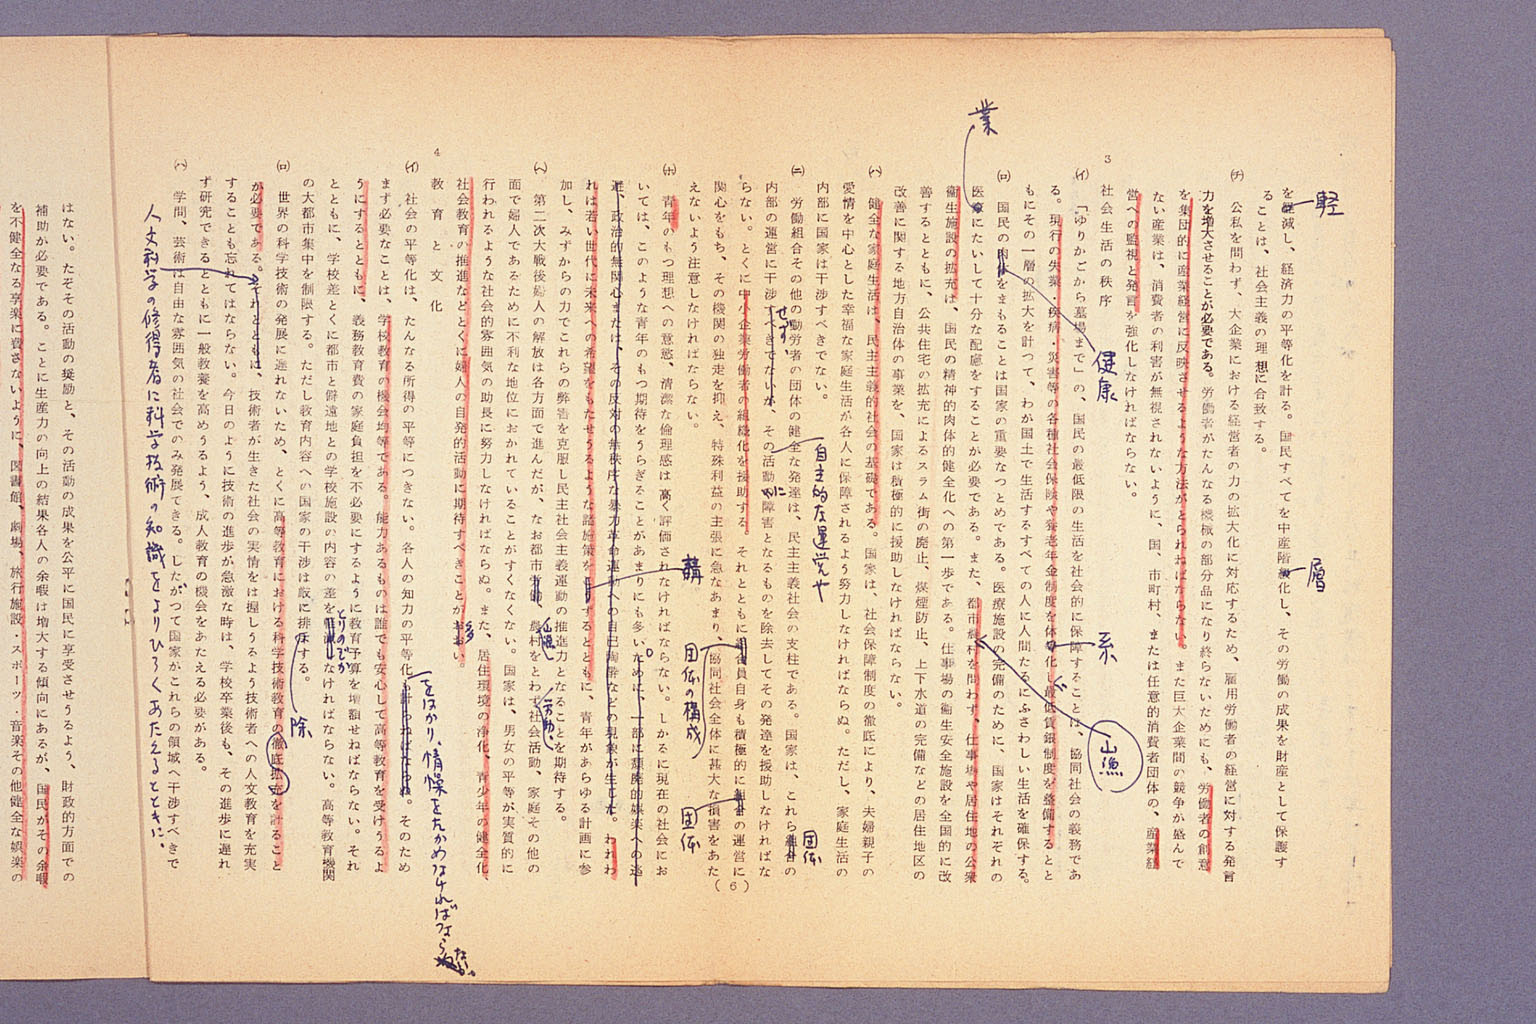 を軽減し、経済力の平等化を計る。国民すべてを中産階級化し、その労働の成果を財産として保護す
ることは、社会主義の理想に合致する。
(チ) 公私を問わず、大企業における経営者の力の拡大化に対応するため、雇用労働者の経営に対する発言
力を増大させることが必要である。労働者がたんなる機械の部分品になり終らないためにも、労働者の創意
を集団的に産業経営に反映させるような方法がとられねばならない。また巨大企業間の競争が盛んで
ない産業は、消費者の利害が無視されないように、国、市町村、または任意的消費者団体の、産業経
営への監視と発言を強化しなければならない。
3 社会生活の秩序
(イ) 「ゆりかごから墓場まで」の、国民の最低限の生活を社会的に保障することは、協同社会の義務であ
る。現行の失業・疾病・災害等の各種社会保険や養老年金制度を体系化し最低賃銀制度を整備するとと
もにその一層の拡大を計つて、わが国土で生活するすべての人に人間たるにふさわしい生活を確保する。
(ロ) 国民の肉体をまもることは国家の重要なつとめである。医療施設の完備のために、国家はそれぞれの
医療にたいして十分な配慮をすることが必要である。また、都市農村を問わず、仕事場や居住地の公衆
衛生施設の拡充は、国民の精神的肉体的健全化への第一歩である。仕事場の衛生安全施設を全国的に改
善するとともに、公共住宅の拡充によるスラム街の廃止、煤煙防止、上下水道の完備などの居住地区の
改善に関する地方自治体の事業を、国家は積極的に援助しなければならない。
(ハ) 健全な家庭生活は、民主主義的社会の基礎である。国家は、社会保障制度の徹底により、夫婦親子の
愛情を中心とした幸福な家庭生活が各人に保障されるよう努力しなければならぬ。ただし、家庭生活の
内部に国家は干渉すべきでない。
(ニ) 労働組合その他の勤労者の団体の健全な発達は、民主主義社会の支柱である。国家は、これら組合の
内部の運営に干渉すべきでないが、その活動の障害となるものを除去してその発達を援助しなければな
らない。とくに中小企業労働者の組織化を援助する。それとともに組合員自身も積極的に組合の運営に
関心をもち、その機関の独走を抑え、特殊利益の主張に急なあまり、協同社会全体に甚大な損害をあた
えないよう注意しなければならない。
(ホ) 青年のもつ理想への意慾、清潔な倫理感は高く評価されなければならない。しかるに現在の社会にお
いては、このような青年のもつ期待をうらぎることがあまりにも多いために、一部に頽廃的娯楽への逃
避、政治的無関心または、その反対の無秩序な暴力革命運動への自己陶酔などの現象が生じた。われわ
れは若い世代に未来への希望をもたせうるような諸施策をするとともに、青年があらゆる計画に参
加し、みずからの力でこれらの弊害を克服し民主社会主義運動の推進力となることを期待する。
(ヘ) 第二次大戦後婦人の解放は各方面で進んだが、なお都市労働、農村をとわず社会活動、家庭その他の
面で婦人であるために不利な地位におかれていることがすくなくない。国家は、男女の平等が実質的に
行われるような社会的雰囲気の助長に努力しなければならぬ。また、居住環境の浄化、青少年の健全化
社会教育の推進などとくに婦人の自発的活動に期待すべきことがおおい。
4 教育と文化
(イ) 社会の平等化は、たんなる所得の平等につきない。各人の知力の平等化も計らねばならぬ。そのため
まず必要なことは、学校教育の機会均等である。能力あるものは誰でも安心して高等教育を受けうるよ
うにするとともに、義務教育費の家庭負担を不必要にするように教育予算を増額せねばならない。それ
とともに、学校差とくに都市と僻遠地との学校施設の内容の差をなければならない。高等教育機関
の大都市集中を制限する。ただし教育内容への国家の干渉は厳に排する。
(ロ) 世界の科学技術の発展に遅れないため、とくに高等教育における科学技術教育の徹底拡充を計ること
が必要である。それとともに、技術者が生きた社会の実情をは握しうるよう技術者への人文教育を充実
することも忘れてはならない。今日のように技術の進歩が急激な時は、学校卒業後も、その進歩に遅れ
ず研究できるとともに一般教養を高めうるよう、成人教育の機会をあたえる必要がある。
(ハ) 学問、芸術は自由な雰囲気の社会でのみ発展できる。したがつて国家がこれらの領域へ干渉すべきで
はない。たぞその活動の奨励と、その活動の成果を公平に国民に享受させうるよう、財政的方面での
補助が必要である。ことに生産力の向上の結果各人の余暇は増大する傾向にあるが、国民がその余暇
を不健全なる享楽に費さないように、図書館、劇場、旅行施設・スポーツ・音楽その他健全な娯楽の
(6)
軽
層
業
健康
系
山漁
せず、
に
自主的な運営や
団体
講
団体の構成
団体
山漁
労働、
多
をはかり、情操をたかめなければならない。
とりのぞか
除
人文科学の修得者に科学技術の知識をよりひろくあたえるとともに、